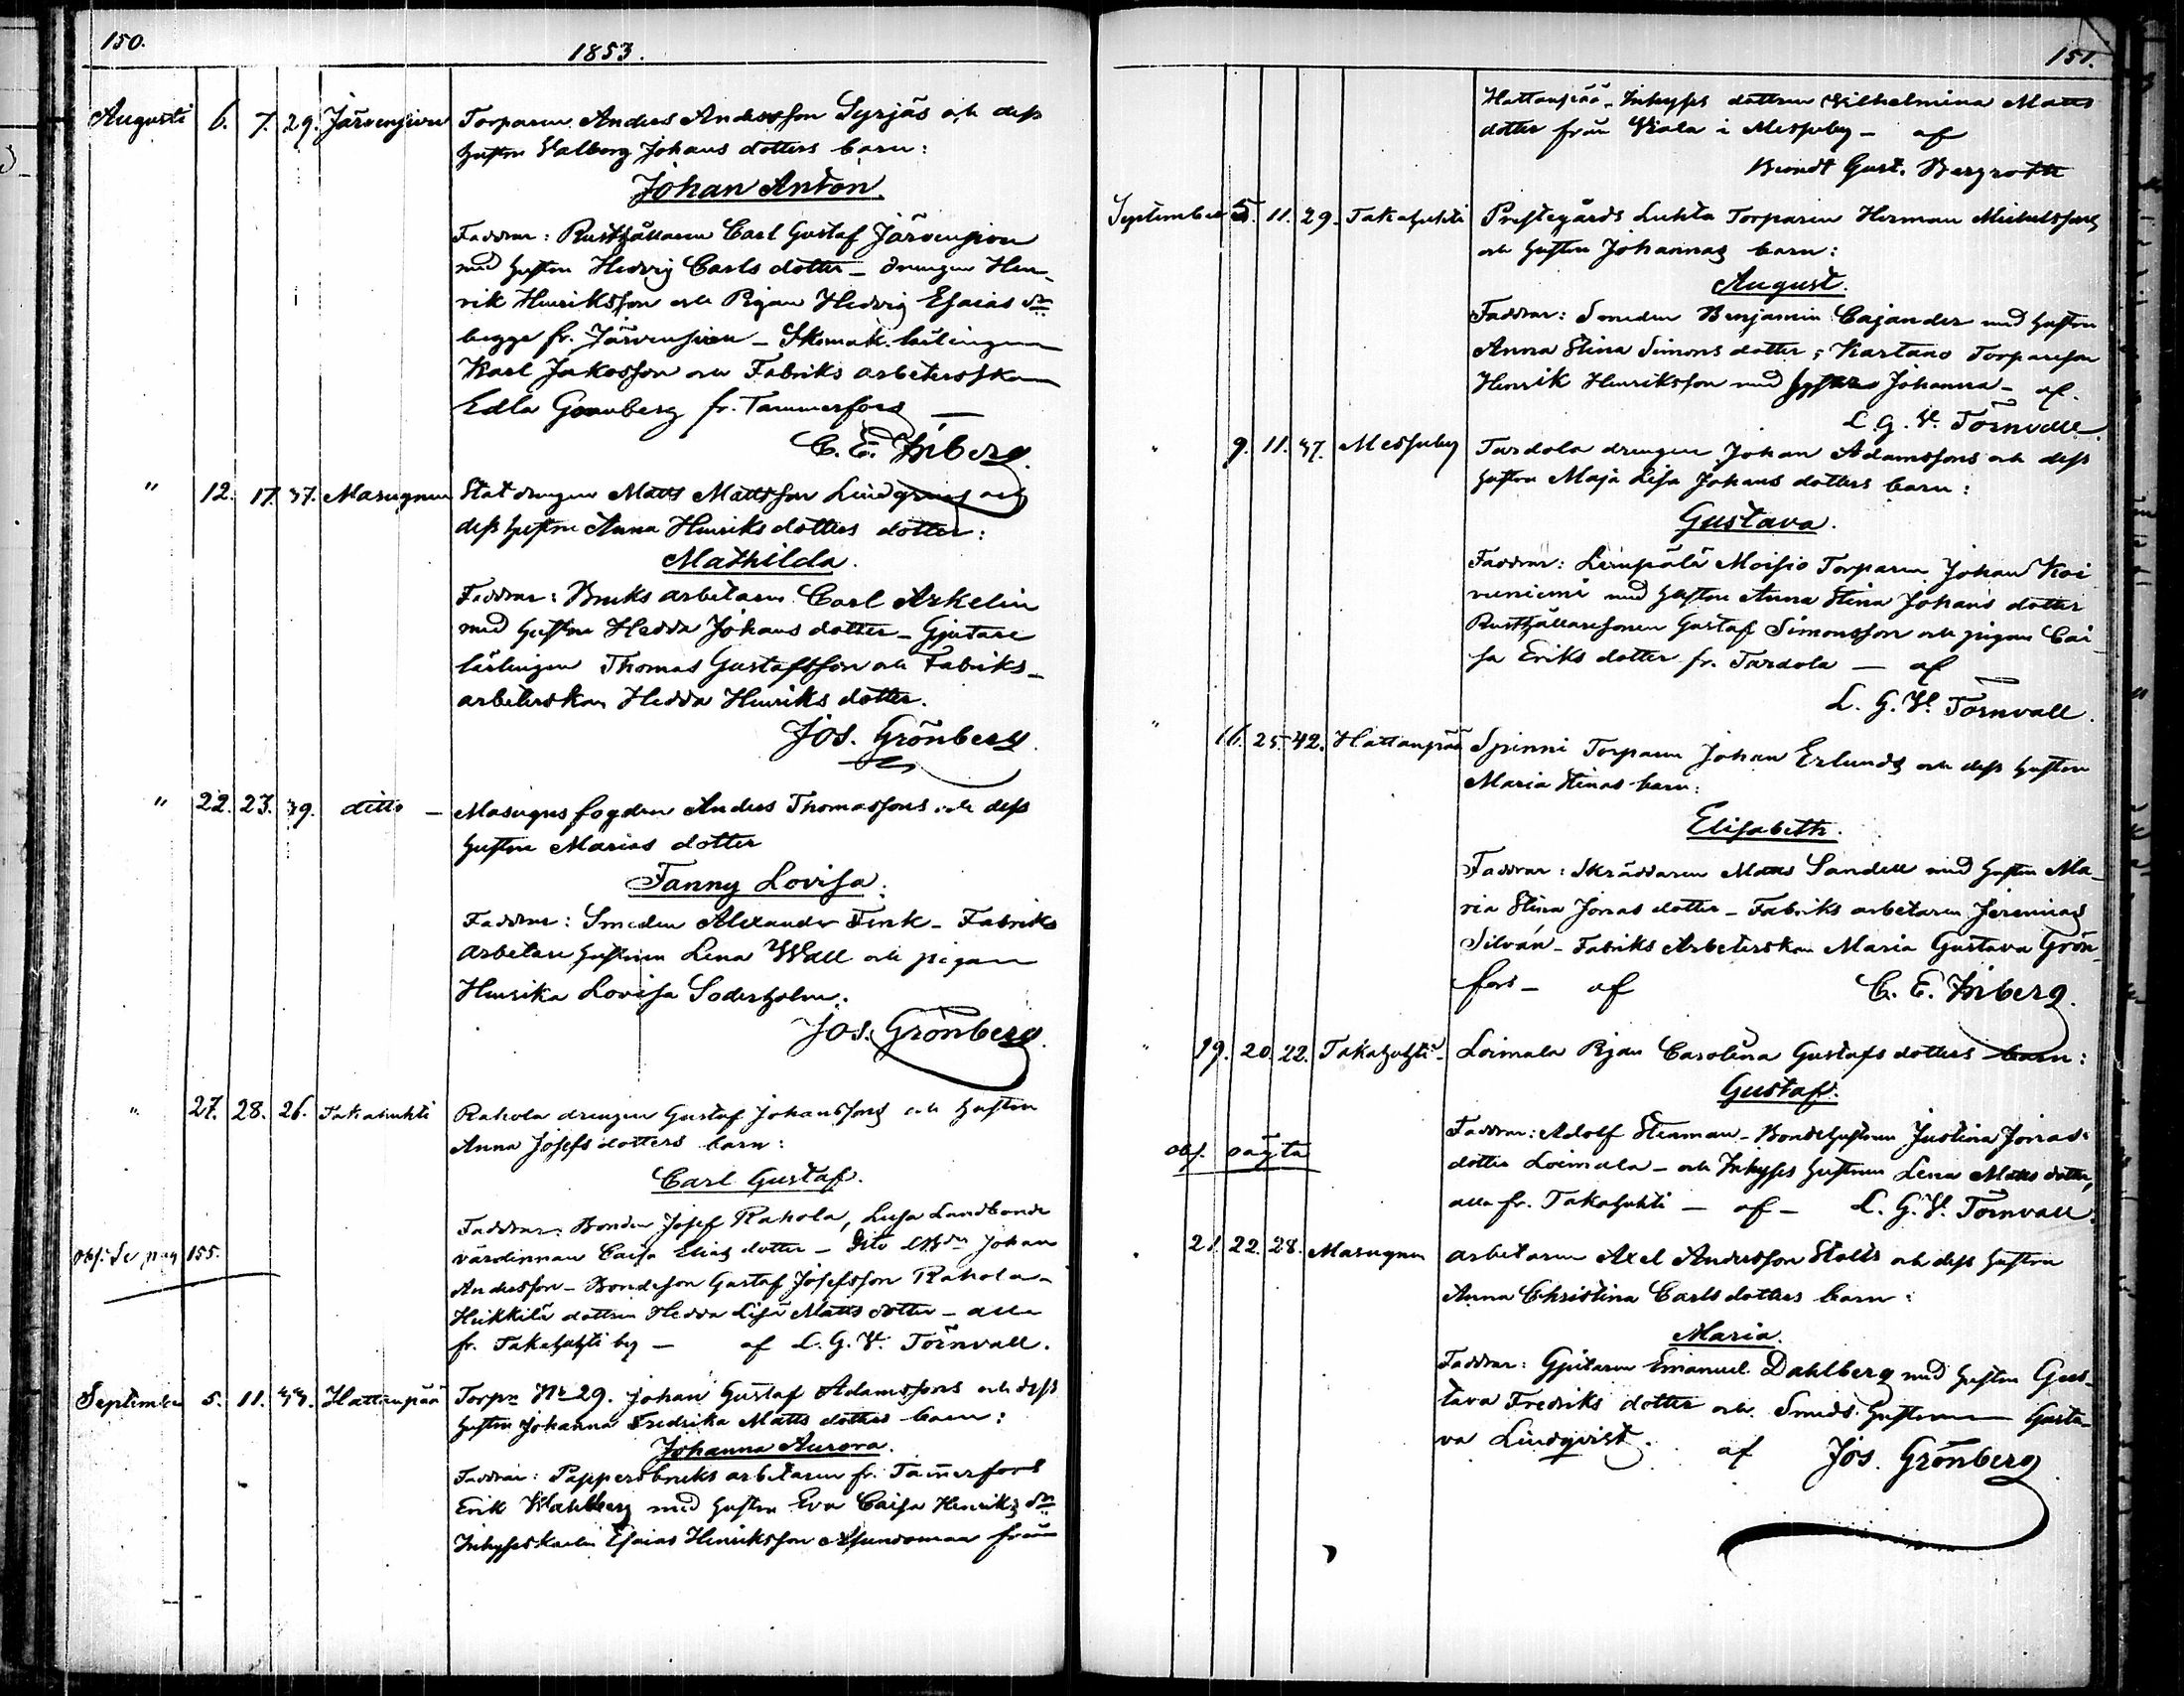 150.
1853.
Augusti 6. 7. 29. Järvensivu Torparen Anders Andersson Syrjäs och dess
hustru Valborg Johans dotters barn:
Johan Anton.
Faddrar: Rusthållaren Carl Gustaf Järvensivu
med hustru Hedvig Carls dotter _ drengen Hen_
rik Henriksson och Pigan Hedvig Esaias dr
begge fr. Järvensivu _ Skomak. lärlingen
Karl Jakosson och Fabriks arbeterskan
Edla Granberg fr. Tammerfors _
C. E. Inberg.
" 12. 17. 37. Masugnen Statdrengen Matts Mattsson Lindgrens och
dess hustru Anna Henriks dotters dotter:
Mathilda.
Faddrar: Bruks arbetaren Carl Arkelin
med hustru Hedda Johans dotter _ Gjutare
lärlingen Thomas Gustafsson och Fabriks_
arbeterskan Hedda Henriks dotter.
Jos. Grönberg.
" 22. 23. 39. ditto _ Masugns fogden Anders Thomassons och dess
hustru Marias dotter
Fanny Lovisa.
Faddrar: Smeden Alexander Fink _ Fabriks
arbetare hustrun Lena Wall och pigan
Henrika Lovisa Söderholm.
Jos. Grönberg.
" 27. 28. 26. Takahuhti Rahola drengen Gustaf Johanssons och hustru
Anna Josefs dotters barn:
Carl Gustaf.
Faddrar: Bonden Josef Rahola, Landbonde
värdinnan Caisa Elias dotter _ Johan
Andersson _ Bondeson Gustaf Josefsson Rahola _
obs. Se pag 155.
Heikkilä dottren Hedda Lisa Matts dotter _ alla
fr. Takahuhti by _ af L. G. V. Törnvall.
September 5. 11. 33. Hattanpää Torpn Nr 29. Johan Gustaf Adamssons och dess
hustru Johanna Fredrika Matts dotters barn:
Johanna Aurora.
Faddrar: Pappersbruks arbetaren fr. Tammerfors
Erik Wahlberg med hustru Eva Caisa Henriks dr
Inhyseskarlen Esaias Henriksson från
151.
Hattanpää _ Inhyses dottren Wilhelmina Matts
dotter från Wiala i Messuby _ af
Berndt Gust. Bergroth
September 5. 11. 29. Takahuhti Prestegårds Luhta Torparen Herman Michelssons
och hustru Johannas barn:
August.
Faddrar: Smeden Benjamin Cajander med hustru
Anna Stina Simons dotter; Kartano Torpareson
Henrik Henriksson med hustru Johanna _ af.
L. G. V. Törnvall.
" 9. 11. 37. Messuby Tardola drengen Johan Adamssons och dess
hustru Maja Lisa Johans dotters barn:
Gustava.
Faddrar: Lempälä Moisio Torparen Johan Koi
vuniemi med hustru Anna Stina Johans dotter
Rusthållaresonen Gustaf Simonsson och pigan Cai
sa Eriks dotter fr. Tardola _ af
L. G. V. Törnvall.
" 16. 25. 42. Hattanpää Spinni Torparen Johan Erlunds och dess hustru
Maria Stinas barn:
Elisabeth.
Faddrar: Skräddaren Matts Sandell med hustru Ma_
ria Stina Jonas dotter _ Fabriks arbetaren Jeremias
Silván _ Fabriks Arbeterskan Maria Gustava Grön_
fors _ af C. E. Inberg.
" 19. 20. 22. Takahuhti _ Loimala Pigan Carolina Gustafs dotters barn:
Gustaf.
Faddrar: Adolf Stenman _ Bondehustrun Justina Jonas
obs. oägta
dotter Loimala _ och Inhyses hustrun Lena Matts dotter,
alla fr. Takahuhti _ af _ L. G. V. Törnvall.
" 21. 22. 28. Masugnen Arbetaren Axel Andersson Stolts och dess hustru
Anna Christina Carls dotters barn:
Maria.
Faddrar: Gjutaren Emanuel Dahlberg med hustru Gus_
tava Fredriks dotter och Smeds hustrun Gusta_
va Lindqvist. af Jos. Grönberg